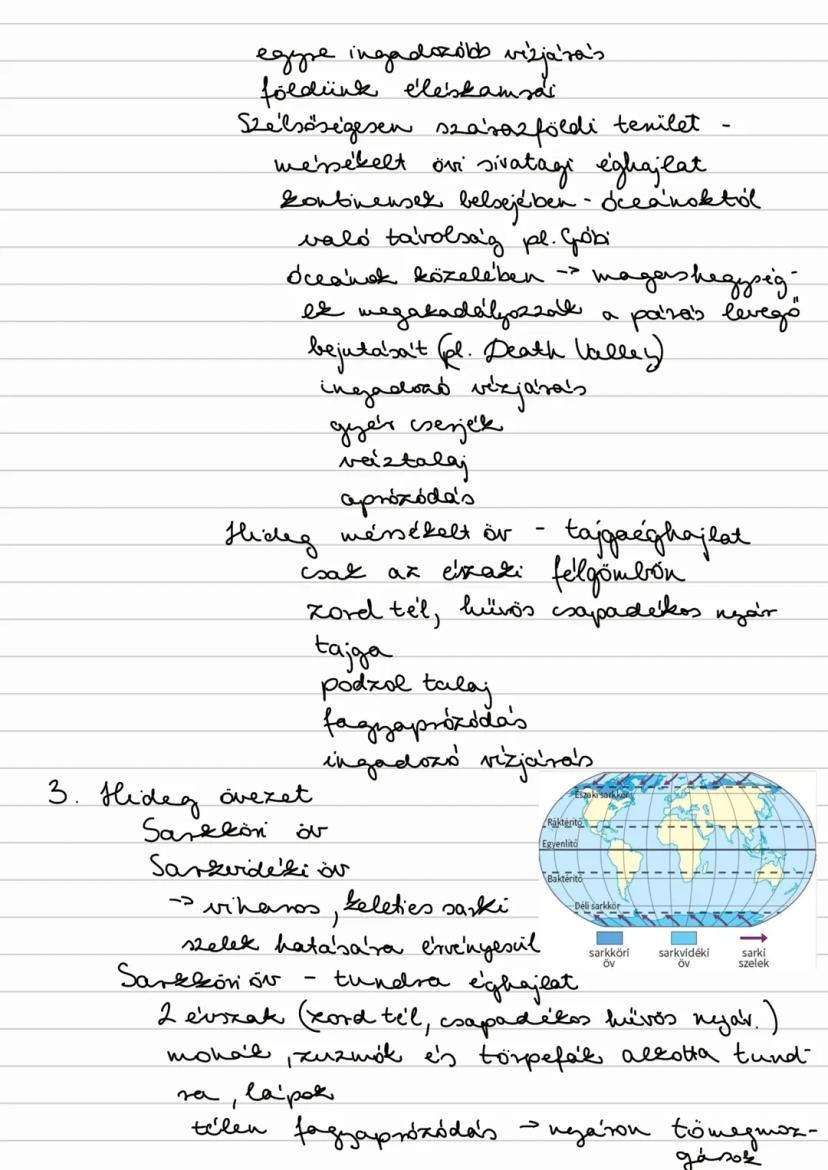 egyre ingadozóbb vízjárás
földünk éléskamrái
Szélsőségesen szárazföldi terület -
mérsékelt övi sivatagi éghajlat
kontinensek belsejében - óceánoktól
való távolság pl. Góbi
óceánok közelében -> magashegység-
ek megakadályozzák a párás levegő
bejutását (pl. Death Valley)
ingadozó vízjárás
gyér cserjék
váztalaj
aprózódás
Hideg mérsékelt öv - tajgaéghajlat
csak az északi félgömbön
zord tél, hűvös csapadékos nyár
tajga
podzol talaj
fagyaprózódás
ingadozó vízjárás
3. Hideg övezet
Sarkköri öv
Sarkvidéki öv
-> viharos, keleties sarki
szelek hatására érvényesül
Északi sarkkör
Ráktérítő
Egyenlítő
Baktérítő
Déli sarkkör
sarkköri öv
sarkvidéki öv
sarki szelek
Sarkköri öv - tundra éghajlat
2 évszak (zord tél, csapadékos hűvös nyár.)
mohák, zuzmók és törpefák alkotta tund-
ra, lápok
télen fagyaprózódás -> nyáron tömegmoz-
gások